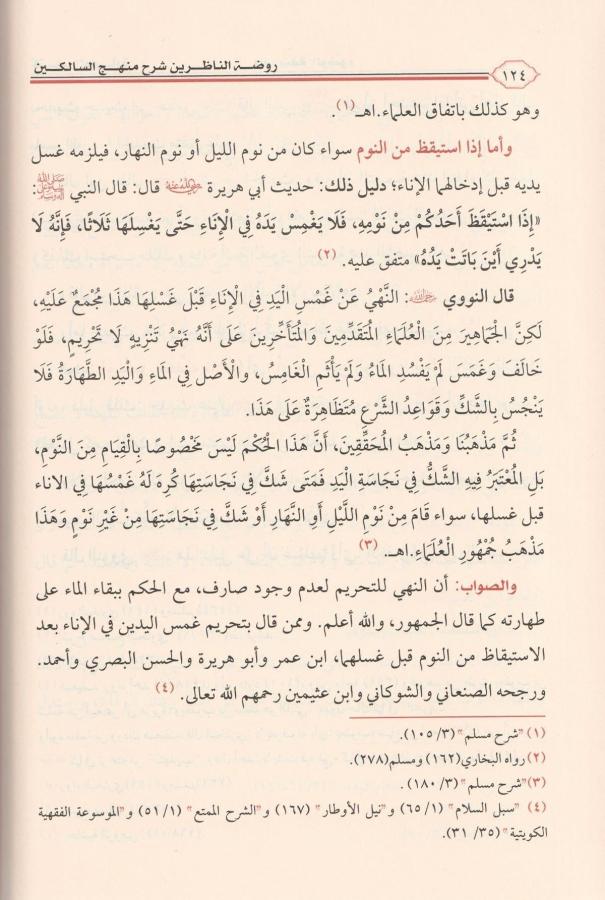 ١٢٤ روضة الناظرين شرح منهج السالكين
وهو كذلك باتفاق العلماء.اهـ (١).
وأما إذا استيقظ من النوم سواء كان من نوم الليل أو نوم النهار، فيلزمه غسل
يديه قبل إدخالهما الإناء؛ دليل ذلك: حديث أبي هريرة رضي الله عنه قال: قال النبي ﷺ:
«إِذَا اسْتَيْقَظَ أَحَدُكُمْ مِنْ نَوْمِهِ، فَلَا يَغْمِسْ يَدَهُ فِي الْإِنَاءِ حَتَّى يَغْسِلَهَا ثَلَاثًا، فَإِنَّهُ لَا
يَدْرِي أَيْنَ بَاتَتْ يَدُهُ» متفق عليه. (٢)
قال النووي رحمه الله: النَّهْيُ عَنْ غَمْسِ الْيَدِ فِي الْإِنَاءِ قَبْلَ غَسْلِهَا هَذَا مُجْمَعٌ عَلَيْهِ،
لَكِنَّ الْجَمَاهِيرَ مِنَ الْعُلَمَاءِ الْمُتَقَدِّمِينَ وَالْمُتَأَخِّرِينَ عَلَى أَنَّهُ نَهْيُ تَنْزِيهٍ لَا تَحْرِيمٍ، فَلَوْ
خَالَفَ وَغَمَسَ لَمْ يَفْسُدِ الْمَاءُ وَلَمْ يَأْثَمِ الْغَامِسُ، والْأَصْل فِي الْمَاءِ وَالْيَدِ الطَّهَارَةُ فَلَا
يَنْجُسُ بِالشَّكِّ وَقَوَاعِدُ الشَّرْعِ مُتَظَاهِرَةٌ عَلَى هَذَا.
ثُمَّ مَذْهَبُنَا وَمَذْهَبُ الْمُحَقِّقِينَ، أَنَّ هَذَا الْحُكْمَ لَيْسَ مَخْصُوصًا بِالْقِيَامِ مِنَ النَّوْمِ،
بَلِ الْمُعْتَبَرُ فِيهِ الشَّكُّ فِي نَجَاسَةِ الْيَدِ فَمَتَى شَكَّ فِي نَجَاسَتِهَا كُرِهَ لَهُ غَمْسُهَا فِي الاناء
قبل غسلها، سواء قَامَ مِنْ نَوْمِ اللَّيْلِ أَوِ النَّهَارِ أَوْ شَكَّ فِي نَجَاسَتِهَا مِنْ غَيْرِ نَوْمٍ وَهَذَا
مَذْهَبُ جُمْهُورِ الْعُلَمَاءِ.اهـ (٣)
والصواب: أن النهي للتحريم لعدم وجود صارف، مع الحكم ببقاء الماء على
طهارته كما قال الجمهور، والله أعلم. وممن قال بتحريم غمس اليدين في الإناء بعد
الاستيقاظ من النوم قبل غسلهما، ابن عمر وأبو هريرة والحسن البصري وأحمد.
ورجحه الصنعاني والشوكاني وابن عثيمين رحمهم الله تعالى. (٤)
(١) "شرح مسلم" (٣/ ١٠٥).
(٢) رواه البخاري(١٦٢) ومسلم(٢٧٨).
(٣)"شرح مسلم" (٣/ ١٨٠) .
(٤) "سبل السلام" (١/ ٦٥) و"نيل الأوطار" (١٦٧) و"الشرح الممتع" (١/ ٥١) و"الموسوعة الفقهية
الكويتية" (٣٥/ ٣١).